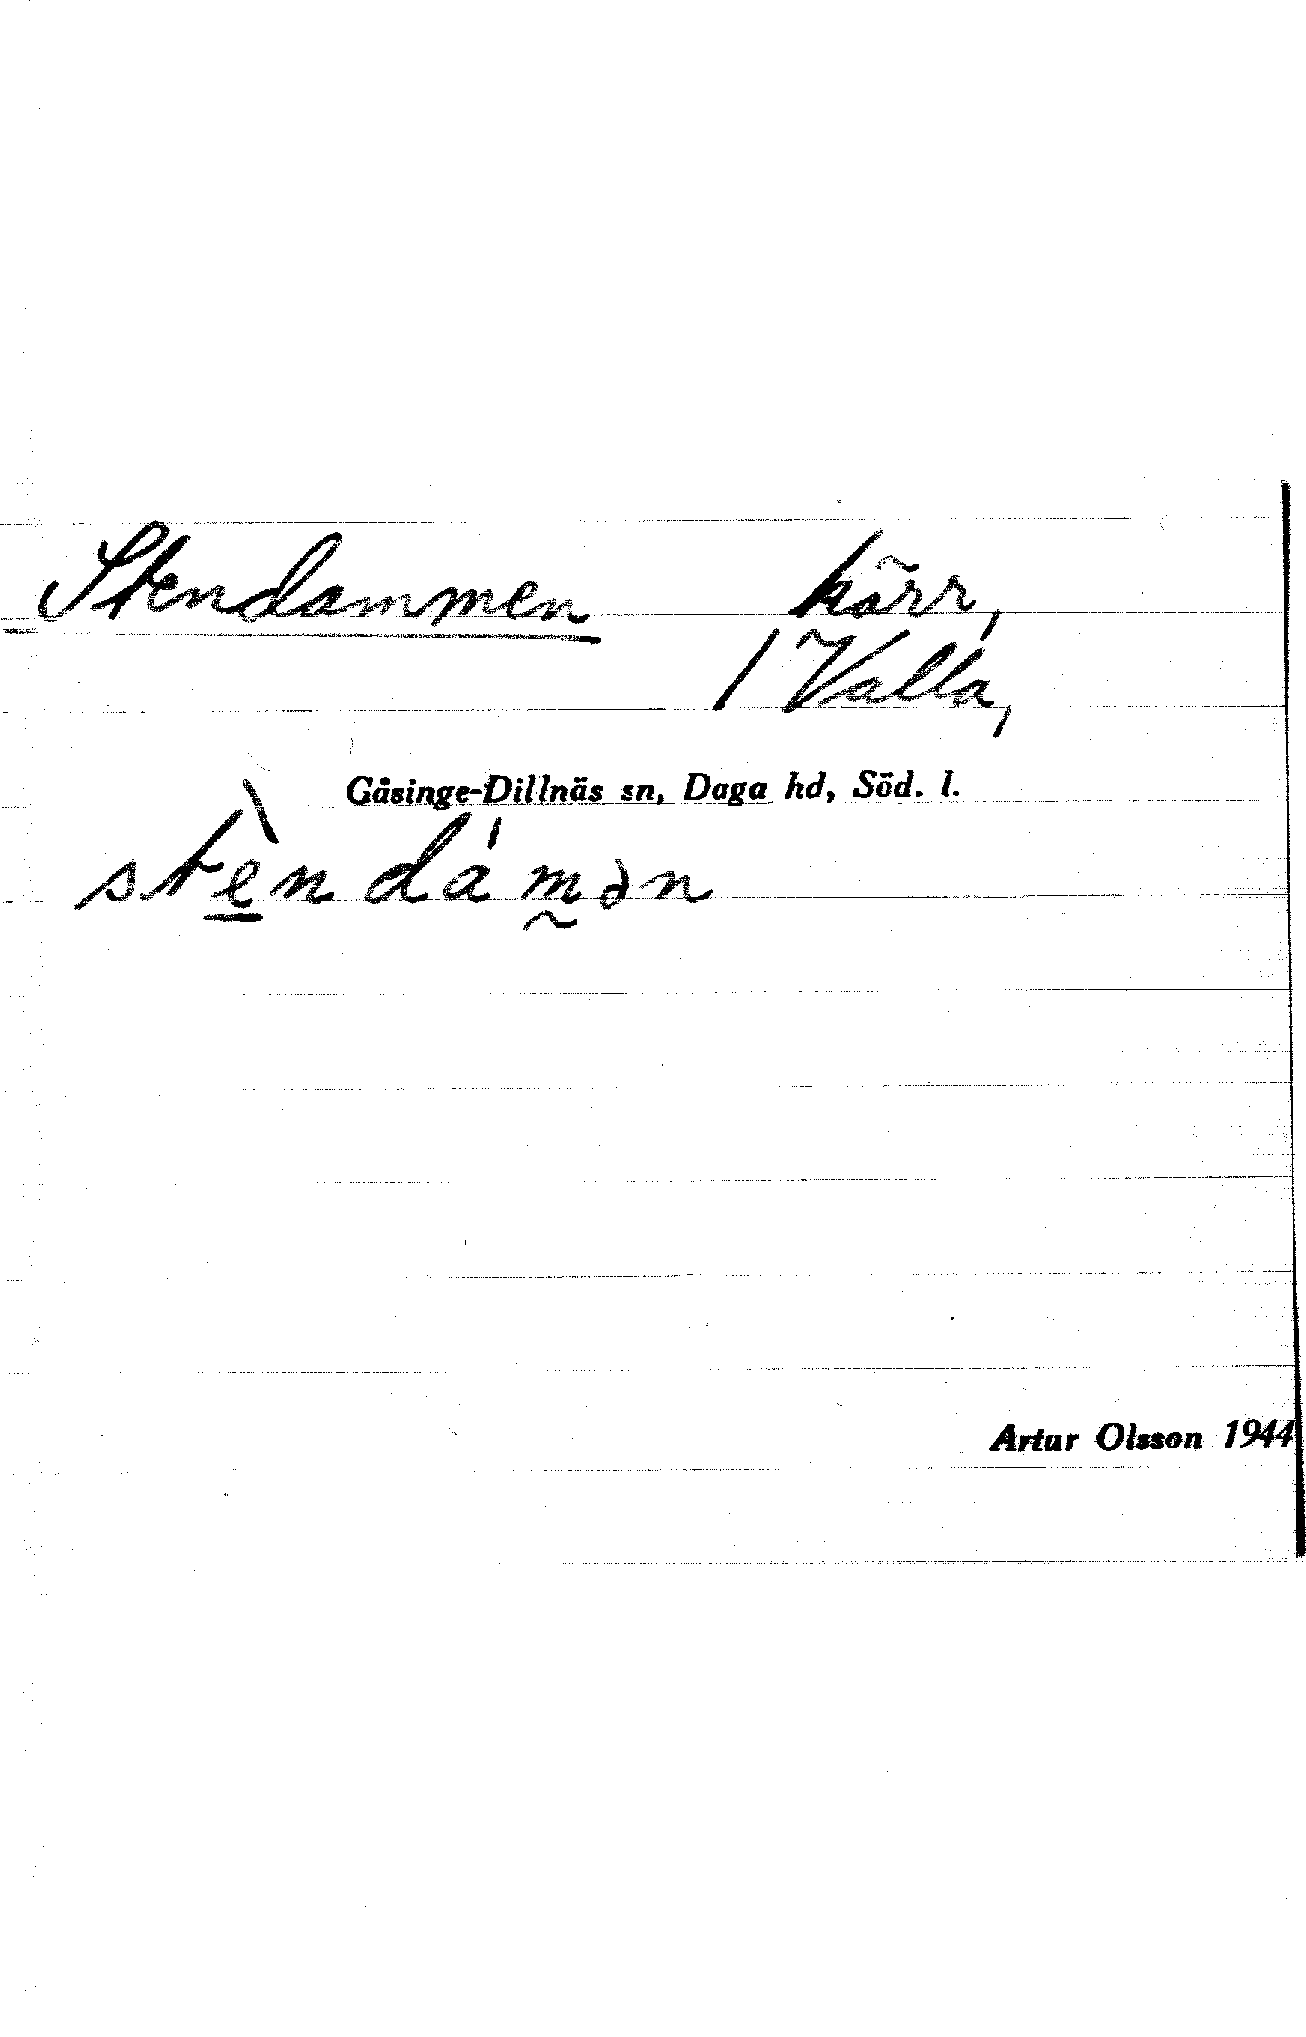 Stendammen kärr,
/ Valla,
Gåsinge-Dillnäs sn, Daga hd, Söd. l.
stèndámən
Artur Olsson 1944